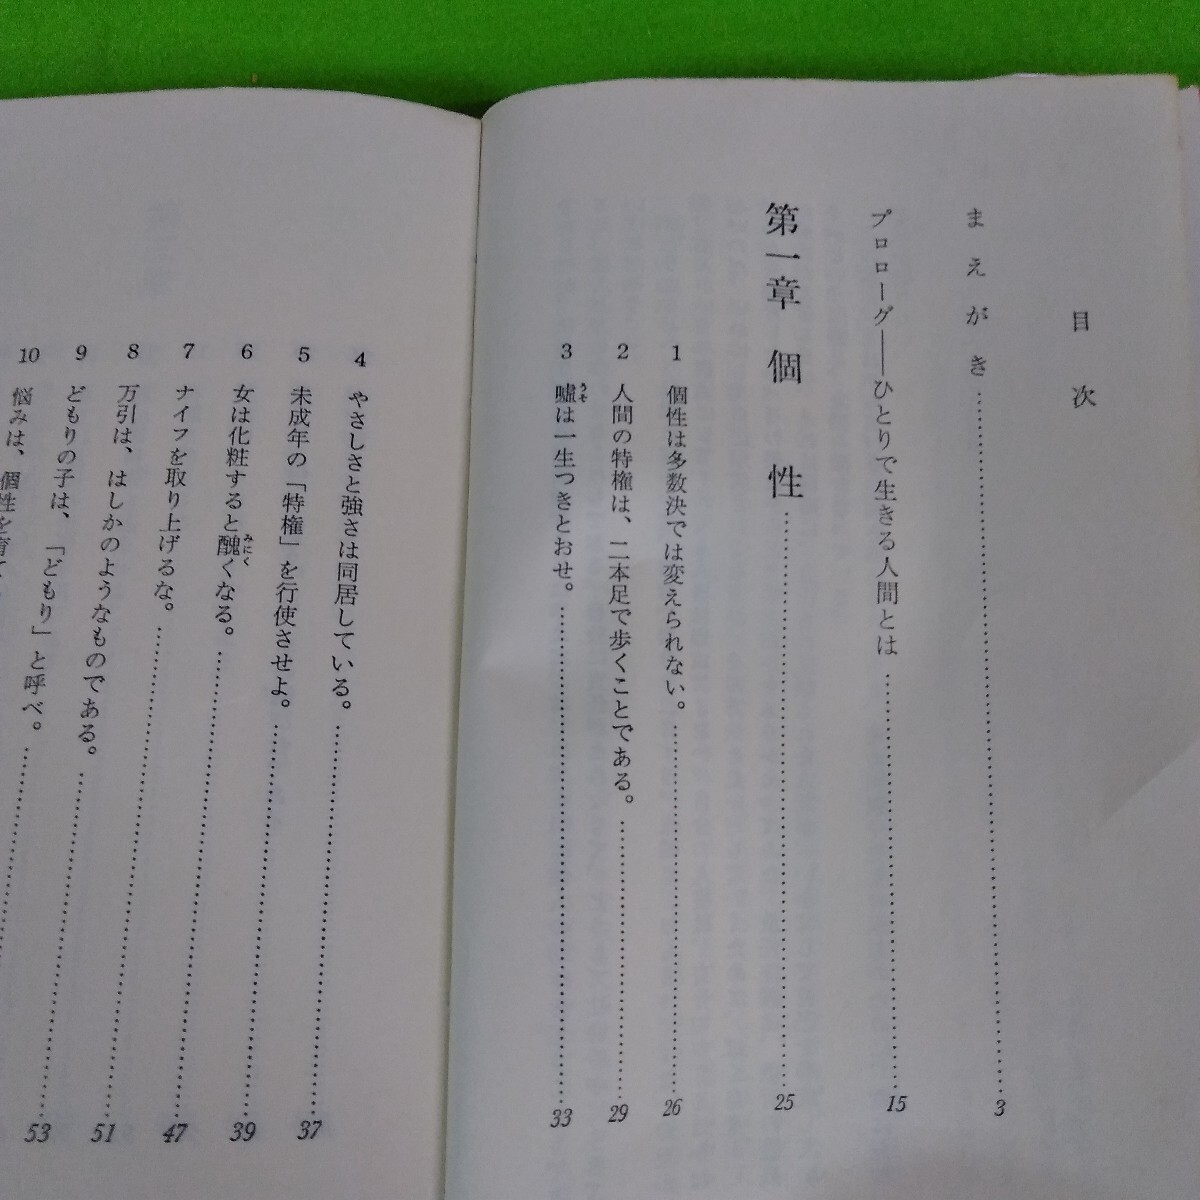 目次
まえがき……3
プロローグ――ひとりで生きる人間とは……15
第一章 個性……25
1 個性は多数決では変えられない。……26
2 人間の特権は、二本足で歩くことである。……29
3 嘘は一生つきとおせ。……33
うそ
4 やさしさと強さは同居している。……37
5 未成年の「特権」を行使させよ。……39
6 女は化粧すると醜くなる。……47
みにく
7 ナイフを取り上げるな。……51
8 万引は、はしかのようなものである。……53
9 どもりの子は、「どもり」と呼べ。……
10 悩みは、個性を育て